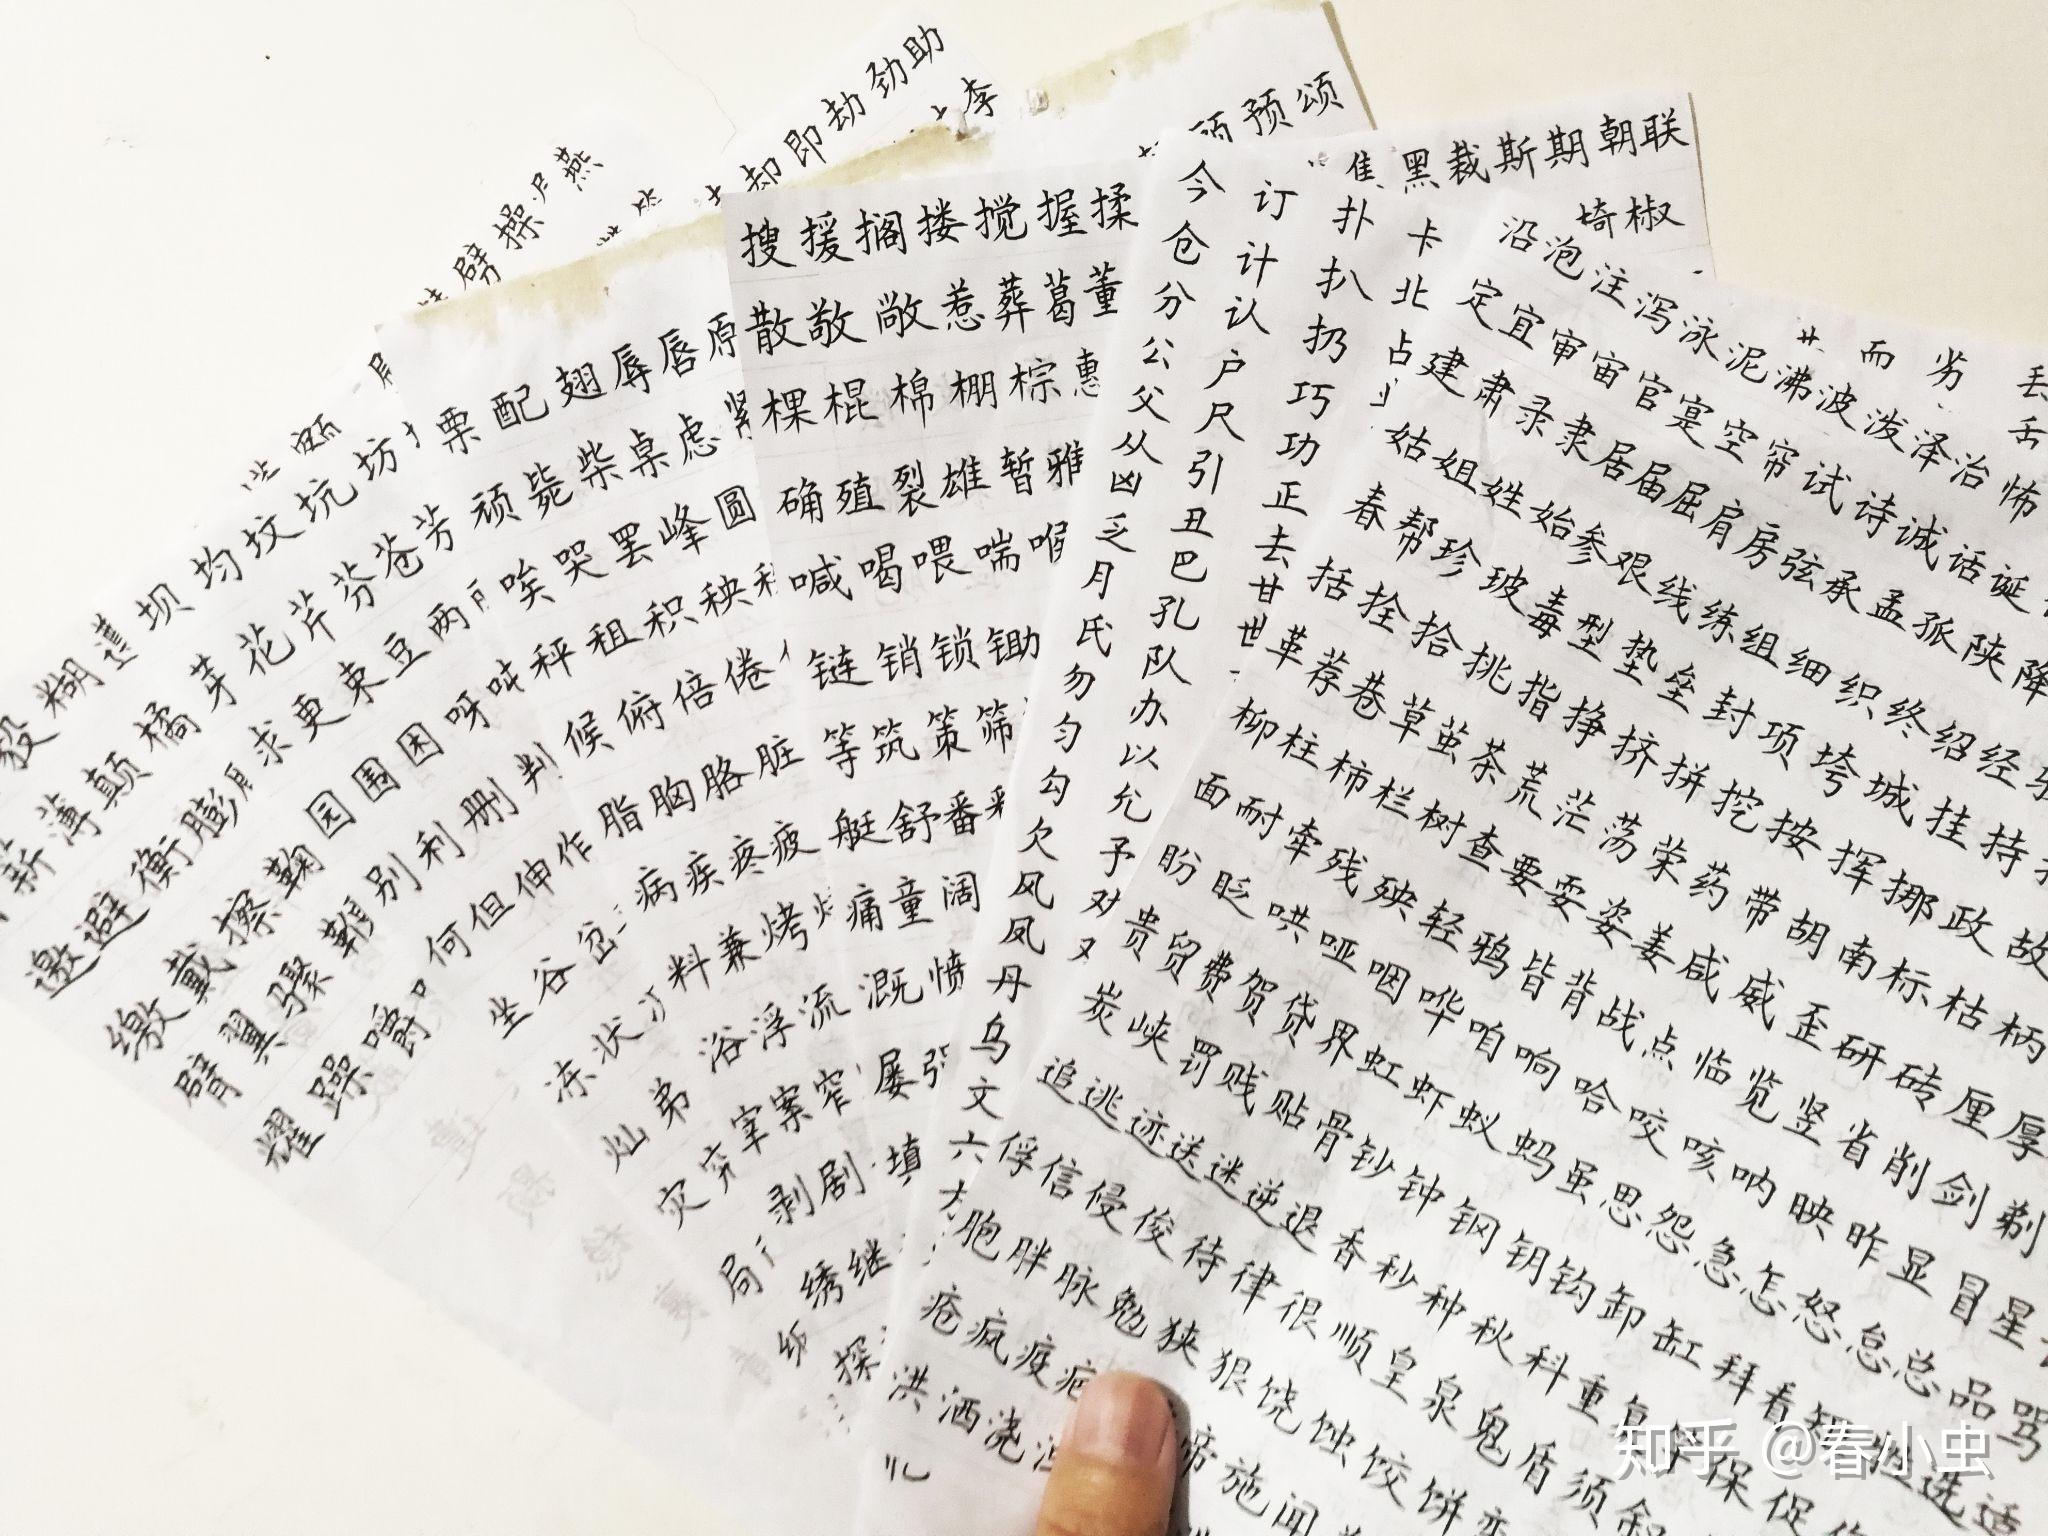 劲助
却即劫
李
燕
劈操
预颂
黑裁斯期朝联
埼椒
糊
坝均坟坑坊
薪薄颠橘
芽花芹芬苍芳
邀避衡膨
求更束豆两
缴戴擦鞠
园围困呀吨
臂翼骤
别利删判
耀躁嚼
何但伸作
坐谷岔
冻状
灿弟
灾穷
局
栗配翅辱唇原
顽毙柴桌虑紧
唉哭罢峰圆
秤租积秧
候俯倍倦
脂胸胳脏
病疾疼疲
料兼烤
浴浮流
宰案窄
剥剧
绣继
搜援搁搂搅握揉
散敬敞惹葬葛董
棵棍棉棚棕惠
确殖裂雄暂雅
喊喝喂喘喉
链销锁锄
等筑策筛
艇舒番
痛童阔
溉愤
屡
填
探
今仓分公父从凶乏月氏勿匀勾欠风凤丹乌文六
订计认户尺引丑巴孔队办以允予对
扑扒扔巧功正去甘世
卡北占
沿泡注泻泳泥沸波泼泽治怖
定宜审宙官寞空帘试诗诚话诞
建肃录隶居届屈肩房弦承孟孤陕降
姑姐姓始参艰线练组细织终绍经
春帮珍玻毒型垫垒封项垮城挂持
括拴拾挑指挣挤拼挖按挥挪政故
革荐巷草茧茶荒茫荡荣药带胡南标枯柄
柳柱柿栏树查要耍姿姜咸威歪研砖厘厚
面耐牵残殃轻鸦皆背战点临览竖省削剑剃
盼眨哄哑咽哗咱响哈咬咳呐映昨显冒星
贵贸费贺贷界虹虾蚁蚂虽思怨急怎怒怠总品骂
炭峡罚贱贴骨钞钟钢钥钩卸缸拜看
追逃迹送迷逆退香秒种秋科重
俘信侵俊待律很顺皇泉鬼盾须
胞胖脉勉狭狠饶蚀饺饼
疮疯疫疤
施闻
洪洒浇
而劣丢
舌
选适
保促
知乎 @春小虫